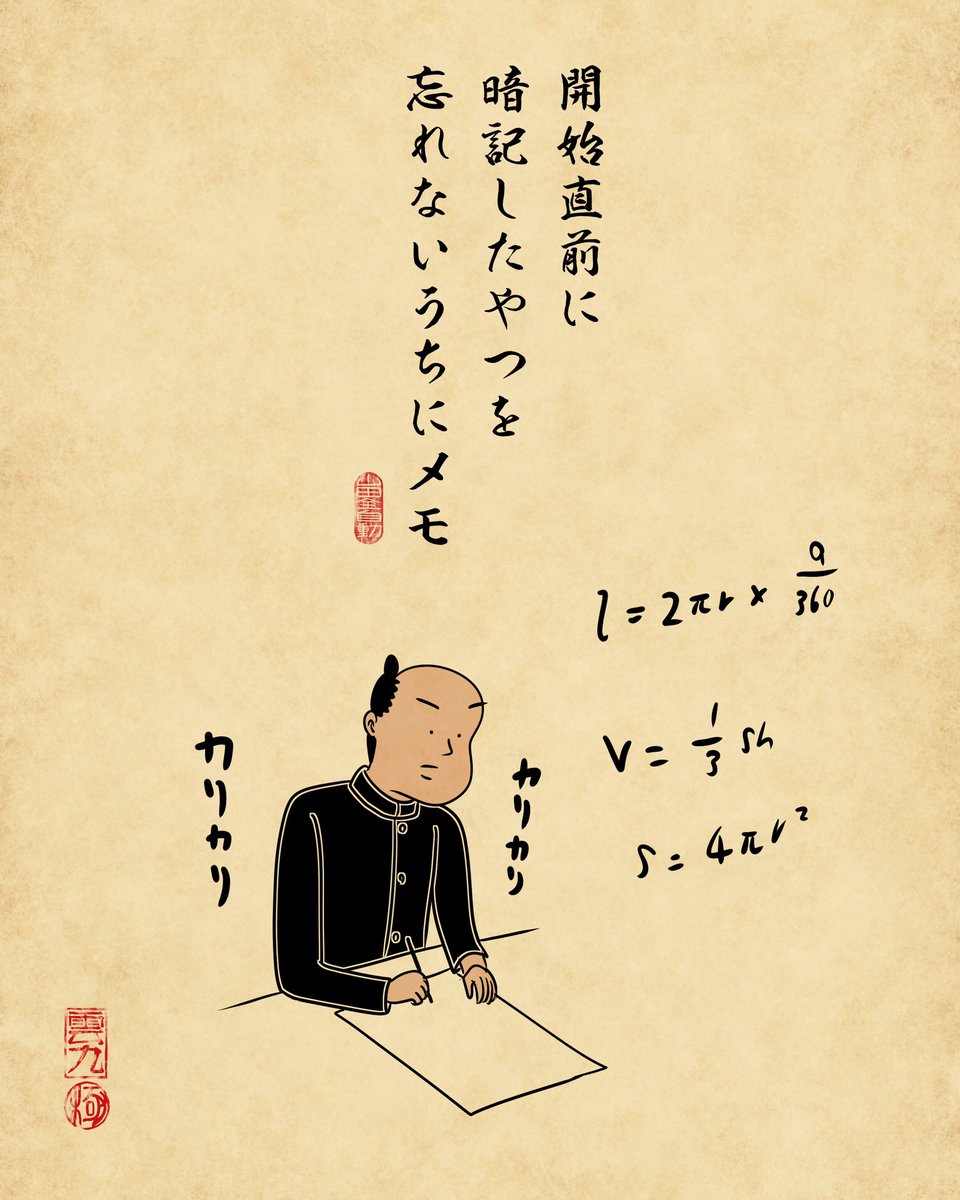 開始直前に
暗記したやつを
忘れないうちにメモ
l = 2πr × a/360
V = 1/3 Sh
S = 4πr²
カリカリ
カリカリ